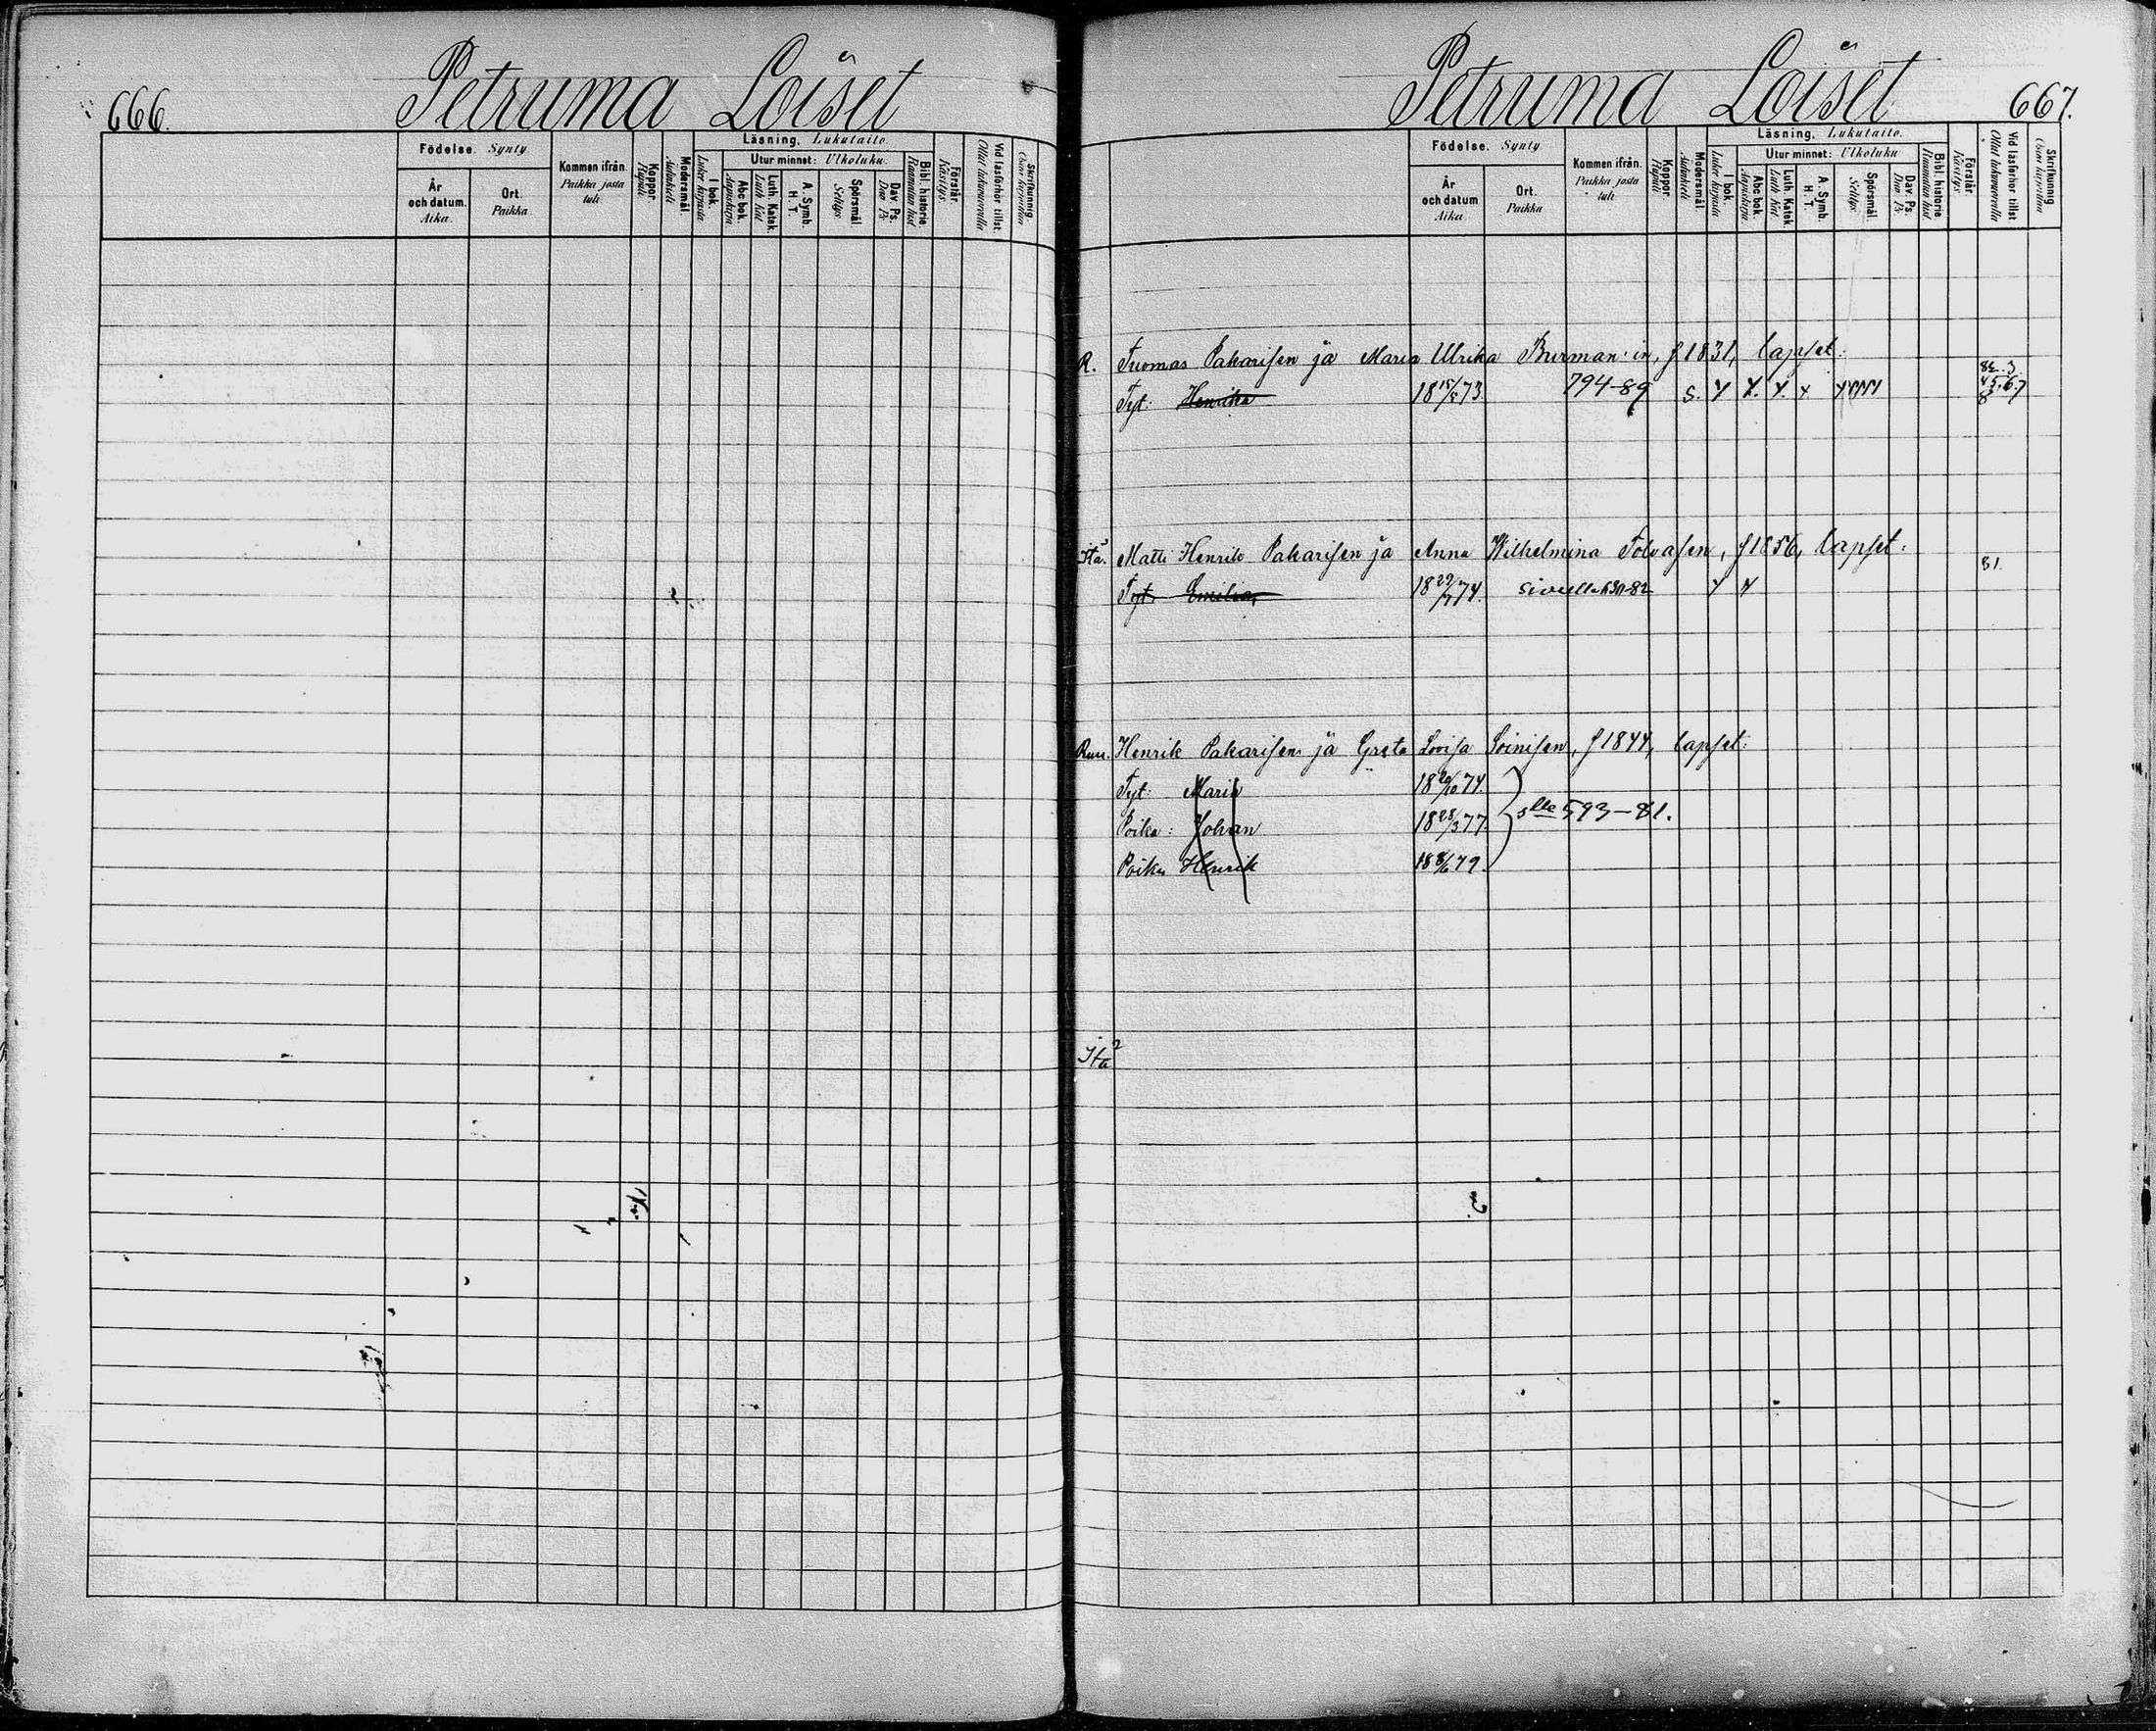 666.
Petruma Loiset
Födelse. Synty.
År och datum. Aika.
Ort. Paikka.
Kommen ifrån. Paikka josta tuli
Koppor. Rupuli
Modersmål. Äidinkieli
Läsning. Lukutaito.
I bok. Lukee kirjasta
Utur minnet: Ulkoluku.
Abc bok. Aapiskirja
Luth. Katek. Luth. Kat.
A. Symb. H. T.
Spörsmål. Selitys
Dav. Ps. Dav. Ps.
Bibl. historie. Raamatun hist.
Förstår. Käsitys.
Vid läsförhör tillst. Ollut lukuvuorolla
Skrifkunnig.
Petruma Loiset
667.
Födelse. Synty
År och datum Aika
Ort. Paikka
Kommen ifrån. Paikka josta tuli
Koppor. Rupuli
Modersmål. Äidinkieli
Läsning. Lukutaito.
I bok. Lukee kirjasta
Utur minnet: Ulkoluku
Abc bok. Aapiskirja
Luth. Katek. Luth. Kat.
A. Symb. H. T.
Spörsmål. Selitys
Dav. Ps. Dav. Ps.
Bibl. historie. Raamatun hist.
Förstår. Käsitys
Vid läsförhör tillst. Ollut lukuvuorolla
Skrifkunnig
R. Tuomas Pakarisen ja Maria Ulrika Burman:in, f 1831, lapset:
Tyt: Henrika 18 15/5 73. 794-89 S. Y Y. Y. Y
Itä. Matti Henrik Pakarisen ja Anna Wilhelmina Tolvasen, f 1856, lapset: 81.
Tyt. Emilia, 18 29/7 74. sivulla 630-82 Y Y
Ruu. Henrik Pakarisen ja Greta Lovisa Soinisen, f 1844, lapset:
Tyt: Maria 18 20/10 74.
Poika: Johan 18 28/3 77. slle 593-81.
Poika Henrik 18 8/6 79.
Itä 2